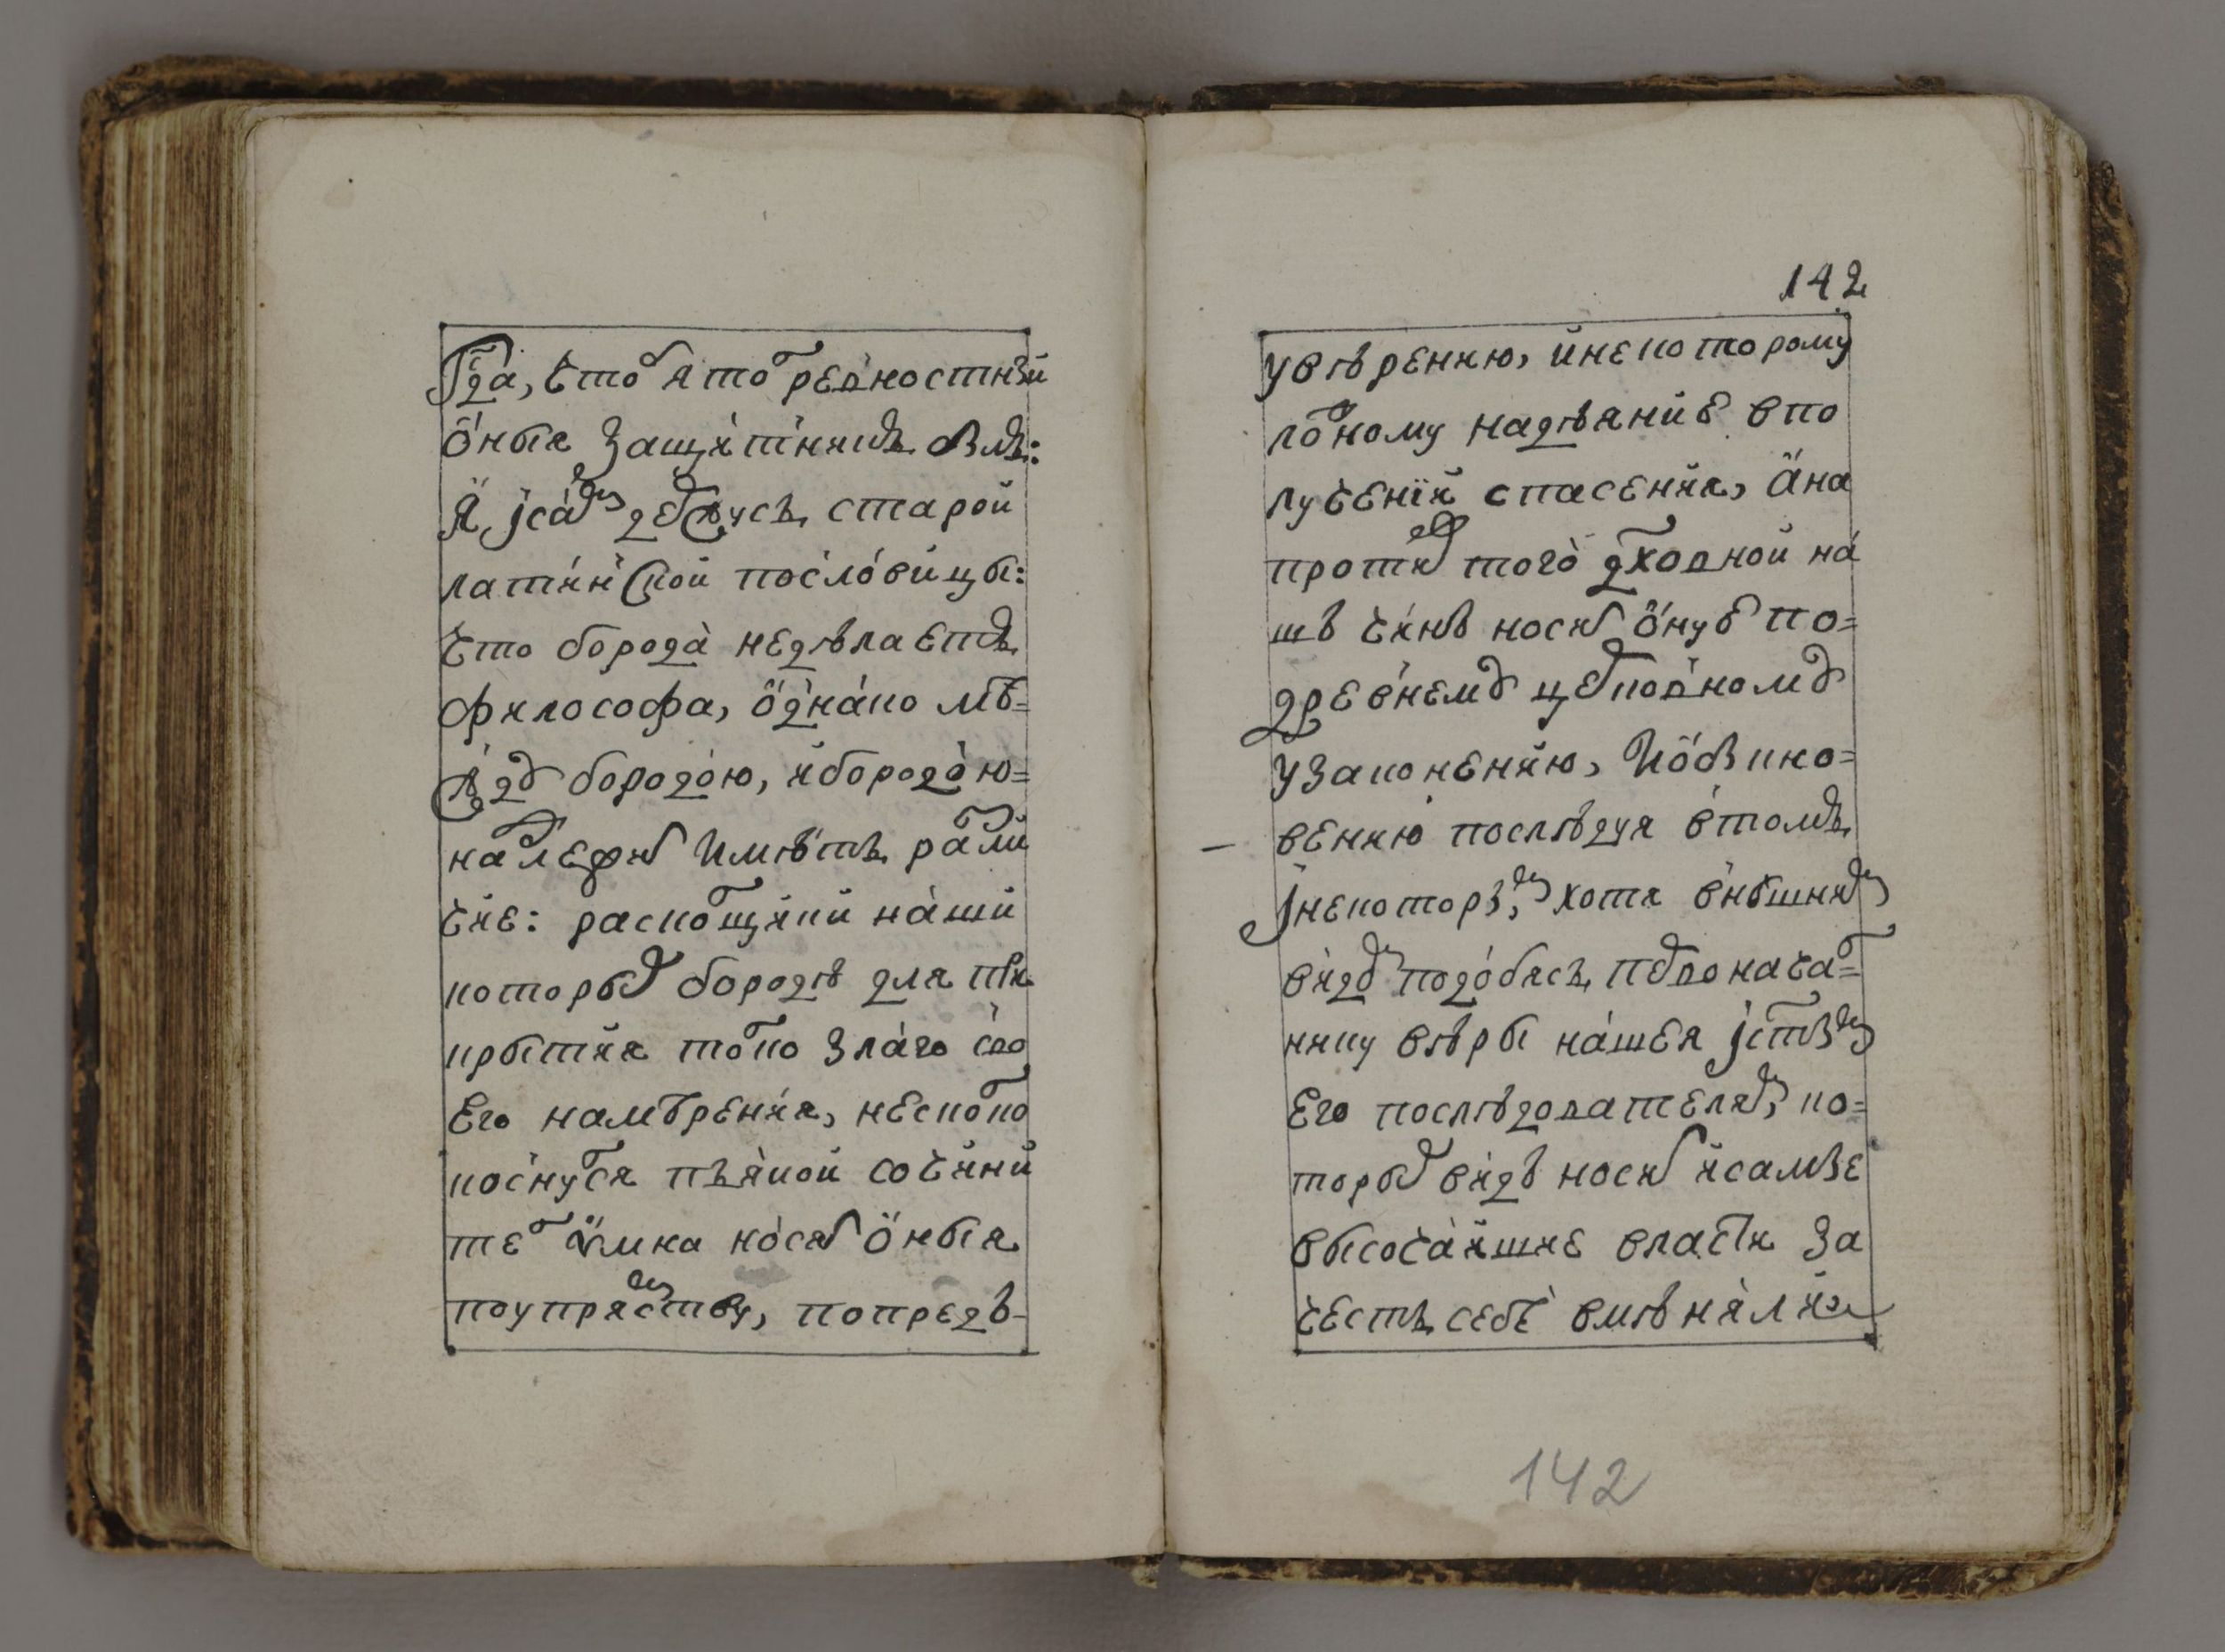 гда, чтоб я толь ревностный
оныя защитникъ былъ:
Я самъ держусь старой
латинской пословицы:
что борода не дѣлаетъ
философа, однако мѣ-
жду бородою, и бородою=
кавалеры имѣть разли
чие: раскольщики наши
которые бороды для при
крытия только злаго сво
его намѣрения, несколько
коснутся пьяной
носятъ оныя
по упрямству, по предъ-
142
увѣрению, и некоторому
ложному надѣянию в по
лучении спасения, а на
противъ того духовной на
шъ чинъ носитъ оную по=
древнему церковному
узаконению, и обыкно=
вению послѣдуя в томъ
некоторымъ, хотя внѣшнимъ
видомъ подобясь первонача=
нику вѣры нашея и
его послѣдователямъ, ко=
торый видъ носить и самые
высочайшие власти за
честь себе вмѣняли
142